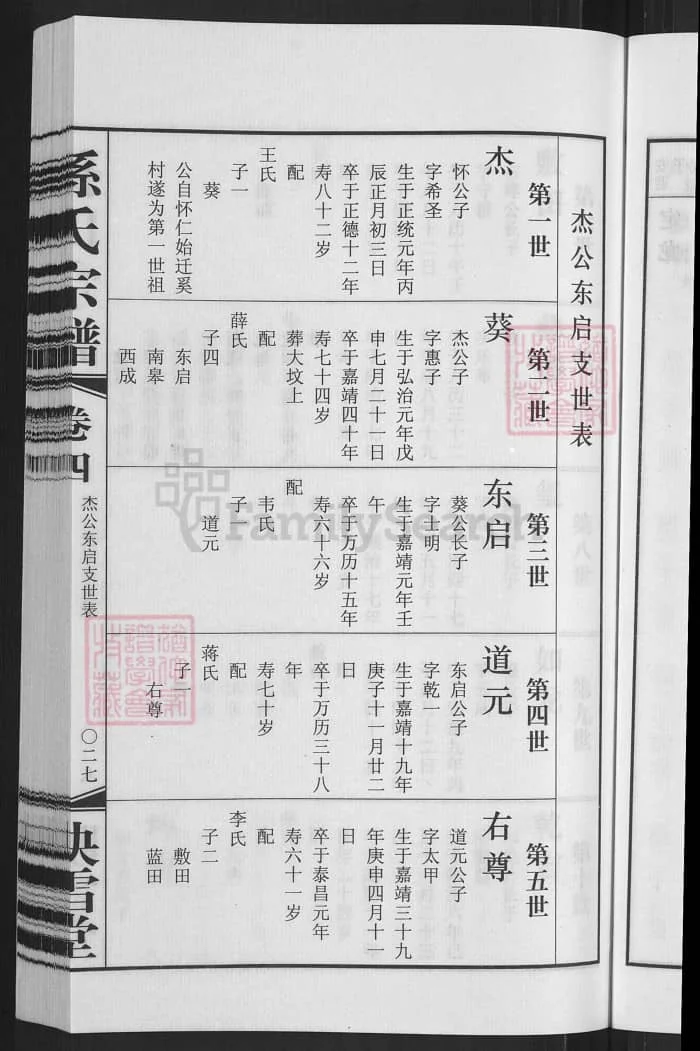 杰公东启支世表
第一世
杰
怀公子
字希圣
生于正统元年丙
辰正月初三日
卒于正德十二年
寿八十二岁
配
王氏
子一
葵
公自怀仁始迁奚
村遂为第一世祖
第二世
葵
杰公子
字惠子
生于弘治元年戊
申七月二十一日
卒于嘉靖四十年
寿七十四岁
葬大坟上
配
薛氏
子四
东启
南皋
西成
第三世
东启
葵公长子
字士明
生于嘉靖元年壬
午
卒于万历十五年
寿六十六岁
配
韦氏
子一
道元
第四世
道元
东启公子
字乾一
生于嘉靖十九年
庚子十一月廿二
日
卒于万历三十八
年
寿七十岁
配
蒋氏
子一
右尊
第五世
右尊
道元公子
字太甲
生于嘉靖三十九
年庚申四月十一
日
卒于泰昌元年
寿六十一岁
配
李氏
子二
敷田
蓝田
孫氏宗譜
卷四
杰公东启支世表
〇二七
映雪堂
FamilySearch